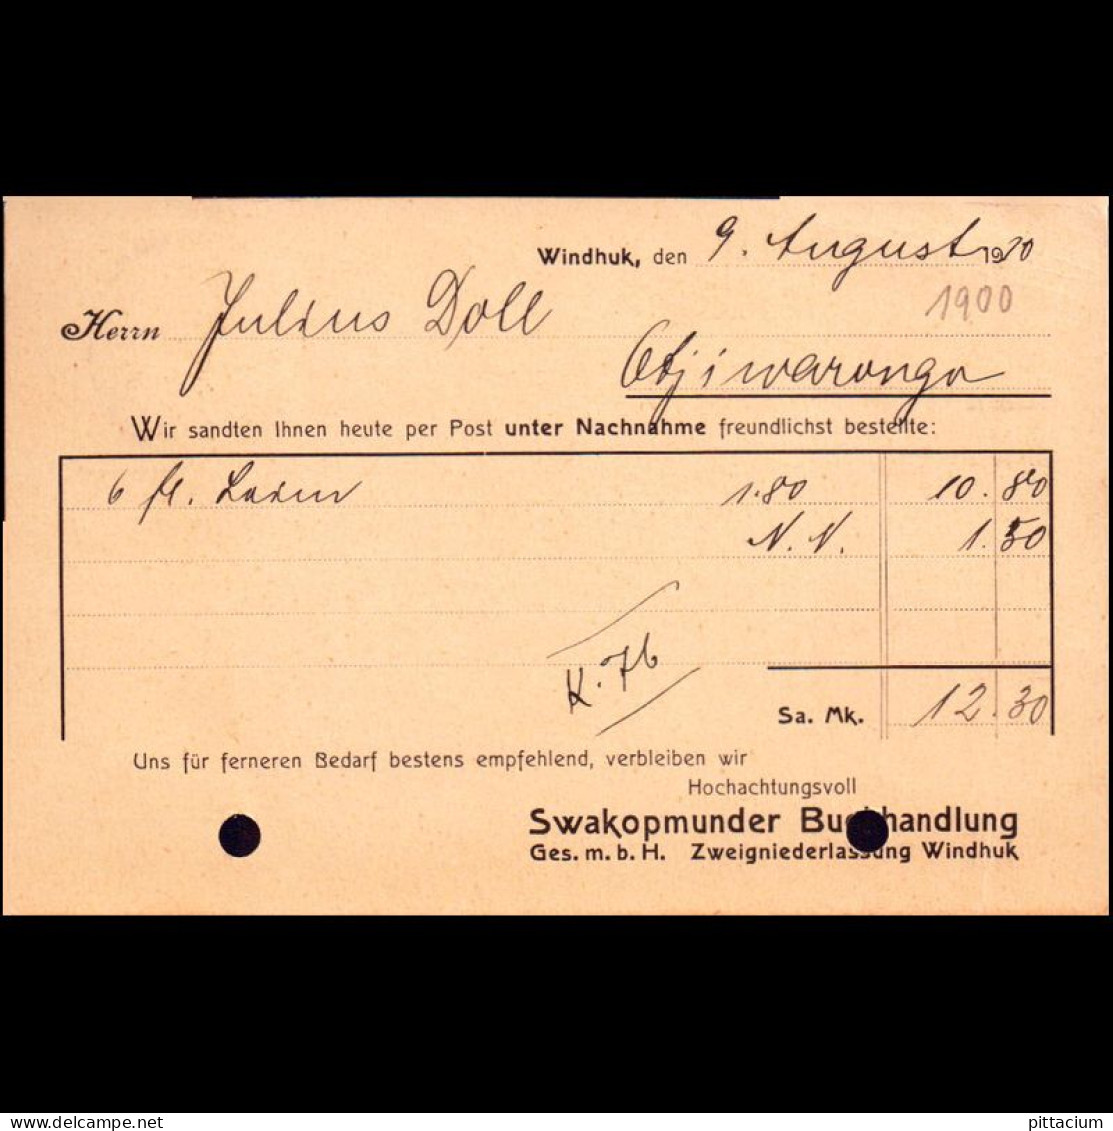 Windhuk, den 9. August 1920
1900
Herrn Julius Doll
Otjiwarongo
Wir sandten Ihnen heute per Post unter Nachnahme freundlichst bestellte:
6 fl. 1.80 10.80
N. N. 1.50
K. 76
Sa. Mk. 12.30
Uns für ferneren Bedarf bestens empfehlend, verbleiben wir
Hochachtungsvoll
Swakopmunder Buchhandlung
Ges. m. b. H. Zweigniederlassung Windhuk
www.delcampe.net
pittacium